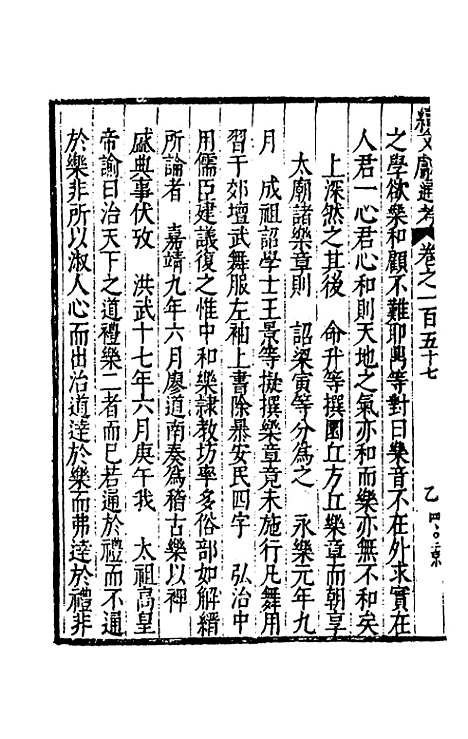 續文獻通考 卷之一百五十七
之學欲樂和顧不難耶興等對曰樂音不在外求實在
人君一心君心和則天地之氣亦和而樂亦無不和矣
上深然之其後　命升等撰圜丘方丘樂章而朝享
太廟諸樂章則　詔梁寅等分為之　永樂元年九
月　成祖詔學士王景等擬撰樂章竟未施行凡舞用
習于郊壇武舞服左袖上書除暴安民四字　弘治中
用儒臣建議復之惟中和樂隸教坊率多俗部如解縉
所論者　嘉靖九年六月廖道南奏為稽古樂以裨
盛典事伏攷　洪武十七年六月庚午我　太祖高皇
帝諭曰治天下之道禮樂二者而已若通於禮而不通
於樂非所以淑人心而出治道達於樂而弗達於禮非